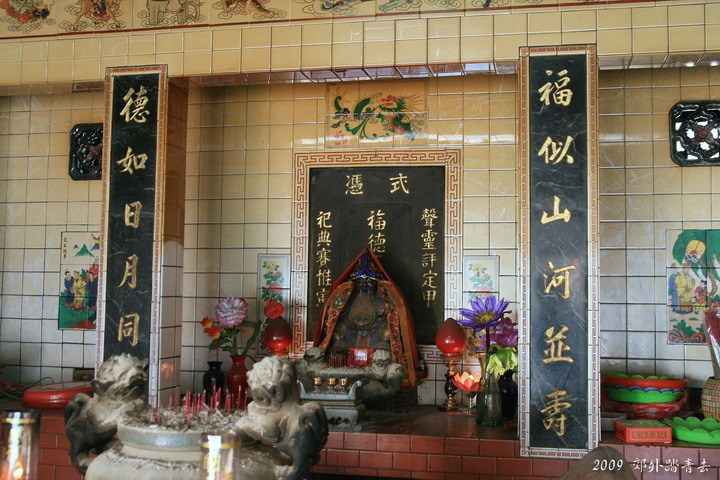 福似山河並壽
德如日月同
式憑
聲靈評定甲
福德
祀典賽惟寅
2009 郊外踏青去